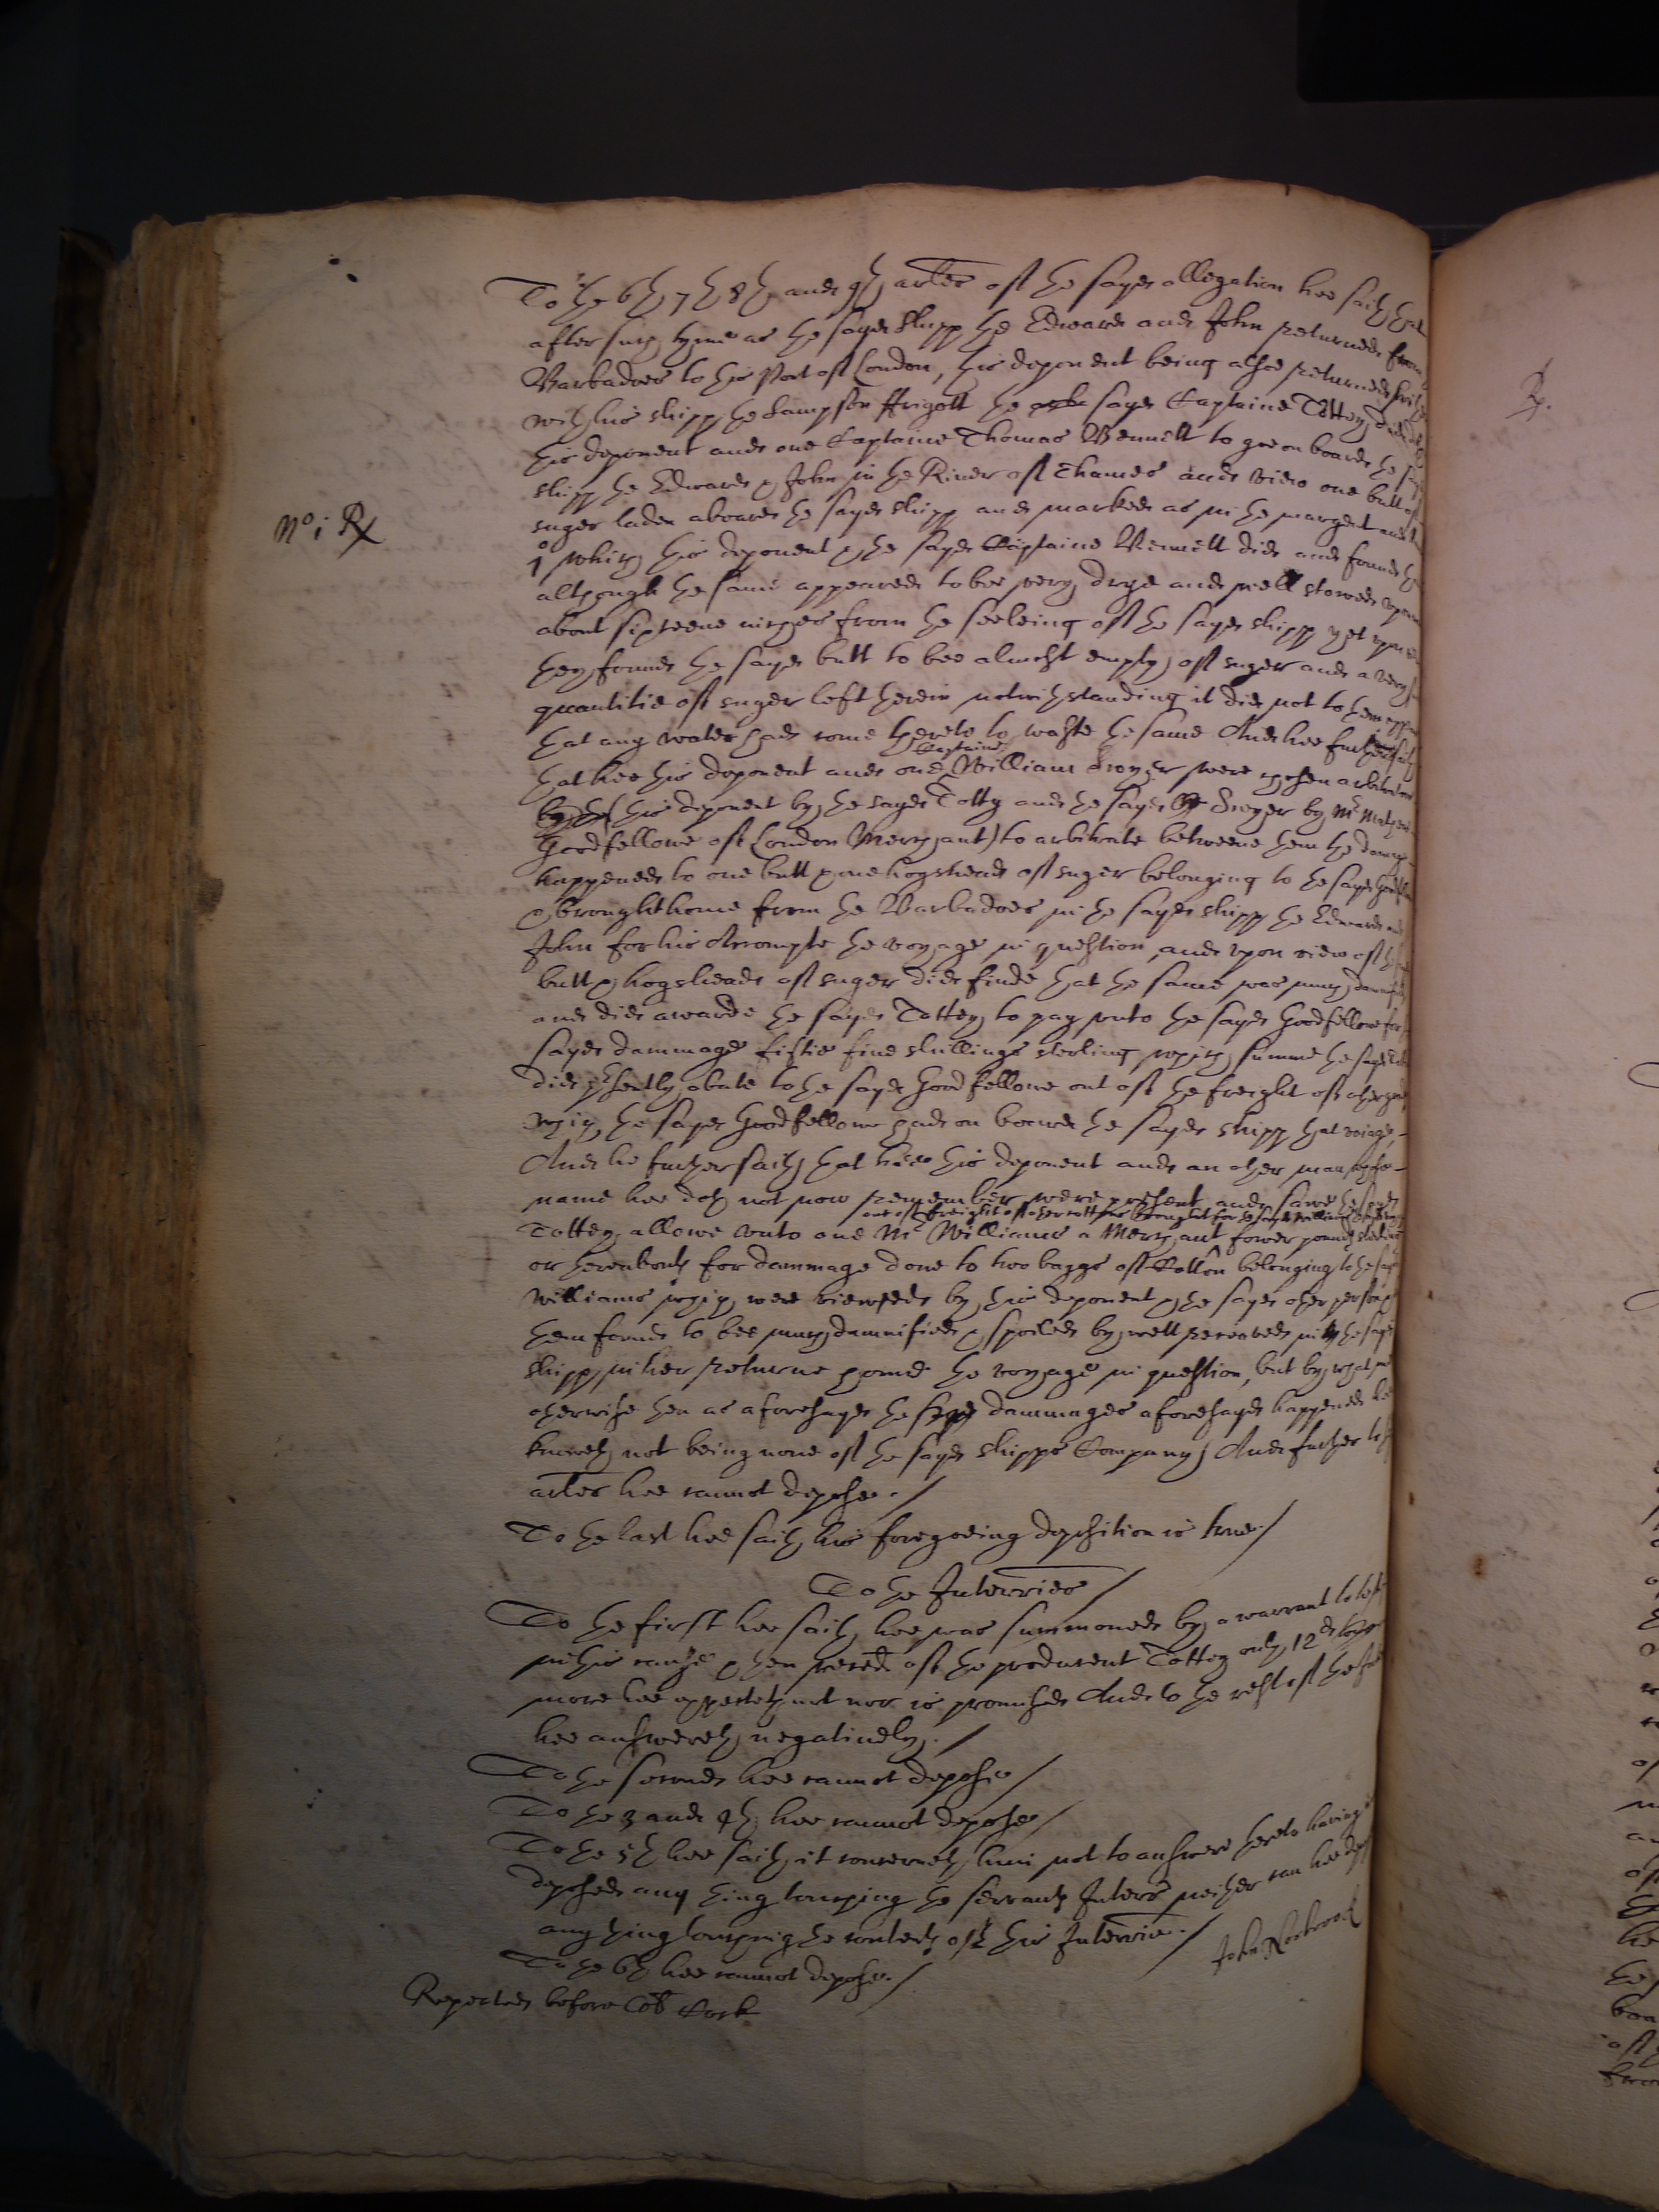 To the 6th 7th 8th and 9th artles of the sayd allegation hee saith that
after such tyme as the sayd shipp the Edward and John returned from
Barbadoes to this Port of London, this deponent being alsoe returned
with his shipp the Sampson ffrigott the sayd Captaine Tottey did
this deponent and one Captaine Thomas Bennett to goe on board the
shipp the Edward & John in the River of Thames and view one butt of
suger laden aboard the sayd shipp and marked as in the margent and
No i R
which this deponent & the sayd Captaine Bennett did and found
although the same appeared to bee very drye and well stowed upon
about sixteene inches from the seeleing of the sayd shipp yet upon
they found the sayd butt to bee almost empty of suger and a very
quantitie of suger left therein notwithstanding it did not to them
that any water had come thereto to waste the same And hee further saith
that hee this deponent and one Captaine William were chosen arbitrators
this deponent by the sayd Totty and the sayd by Mr
Goodfellowe of London Merchant) to arbitrate betweene them the damage
happened to one butt & one hogshead of suger belonging to the sayd
& brought home from the Barbadoes in the sayd shipp the Edward and
John for his Accompte the voyage in question, and upon view of the
butt & hogshead of suger did finde that the same was much
and did awarde the sayd Tottey to pay unto the sayd Goodfellowe for
sayd dammage fiftie five shillings sterling which summe the sayd
did presently abate to the sayd Goodfellowe out of the freight of other
which the sayd Goodfellowe had on board the sayd shipp that voiage,
And he further saith that hee this deponent and an other man whose
name hee doth not now remember were present and sawe the sayd
out of freight of other cotton brought for the sayd Williams
Tottey allowe unto one Mr Williams a Merchant fower pounds
or thereabouts for dammage done to two baggs of Cotton belonging to the sayd
Williams which were viewed by this deponent & the sayd other person
them found to bee much damnified & spoiled by wett received in the sayd
shipp in her returne home the voyage in question, but by what
otherwise then as aforesayd the dammages aforesayd happened
knoweth not being none of the sayd shipps Company And further
artles hee cannot depose./
To the last hee saith his foregoeing deposition is true./
To the Interries /
To the first hee saith hee was summoned by a warrant to
in this cause & hen of the producent Tottey only 12d
more hee expecteth not nor is promised And to the rest of the
hee answereth negatively./
To the second hee cannot depose /
To the 3 and 4th hee cannot depose /
To the 5th hee saith it concerneth him not to answere hereto having
deposed any thing touching the neither can hee
any thing touching the contents of this Interrie./
To the 6th hee cannot depose./
Repeated before Cock
John